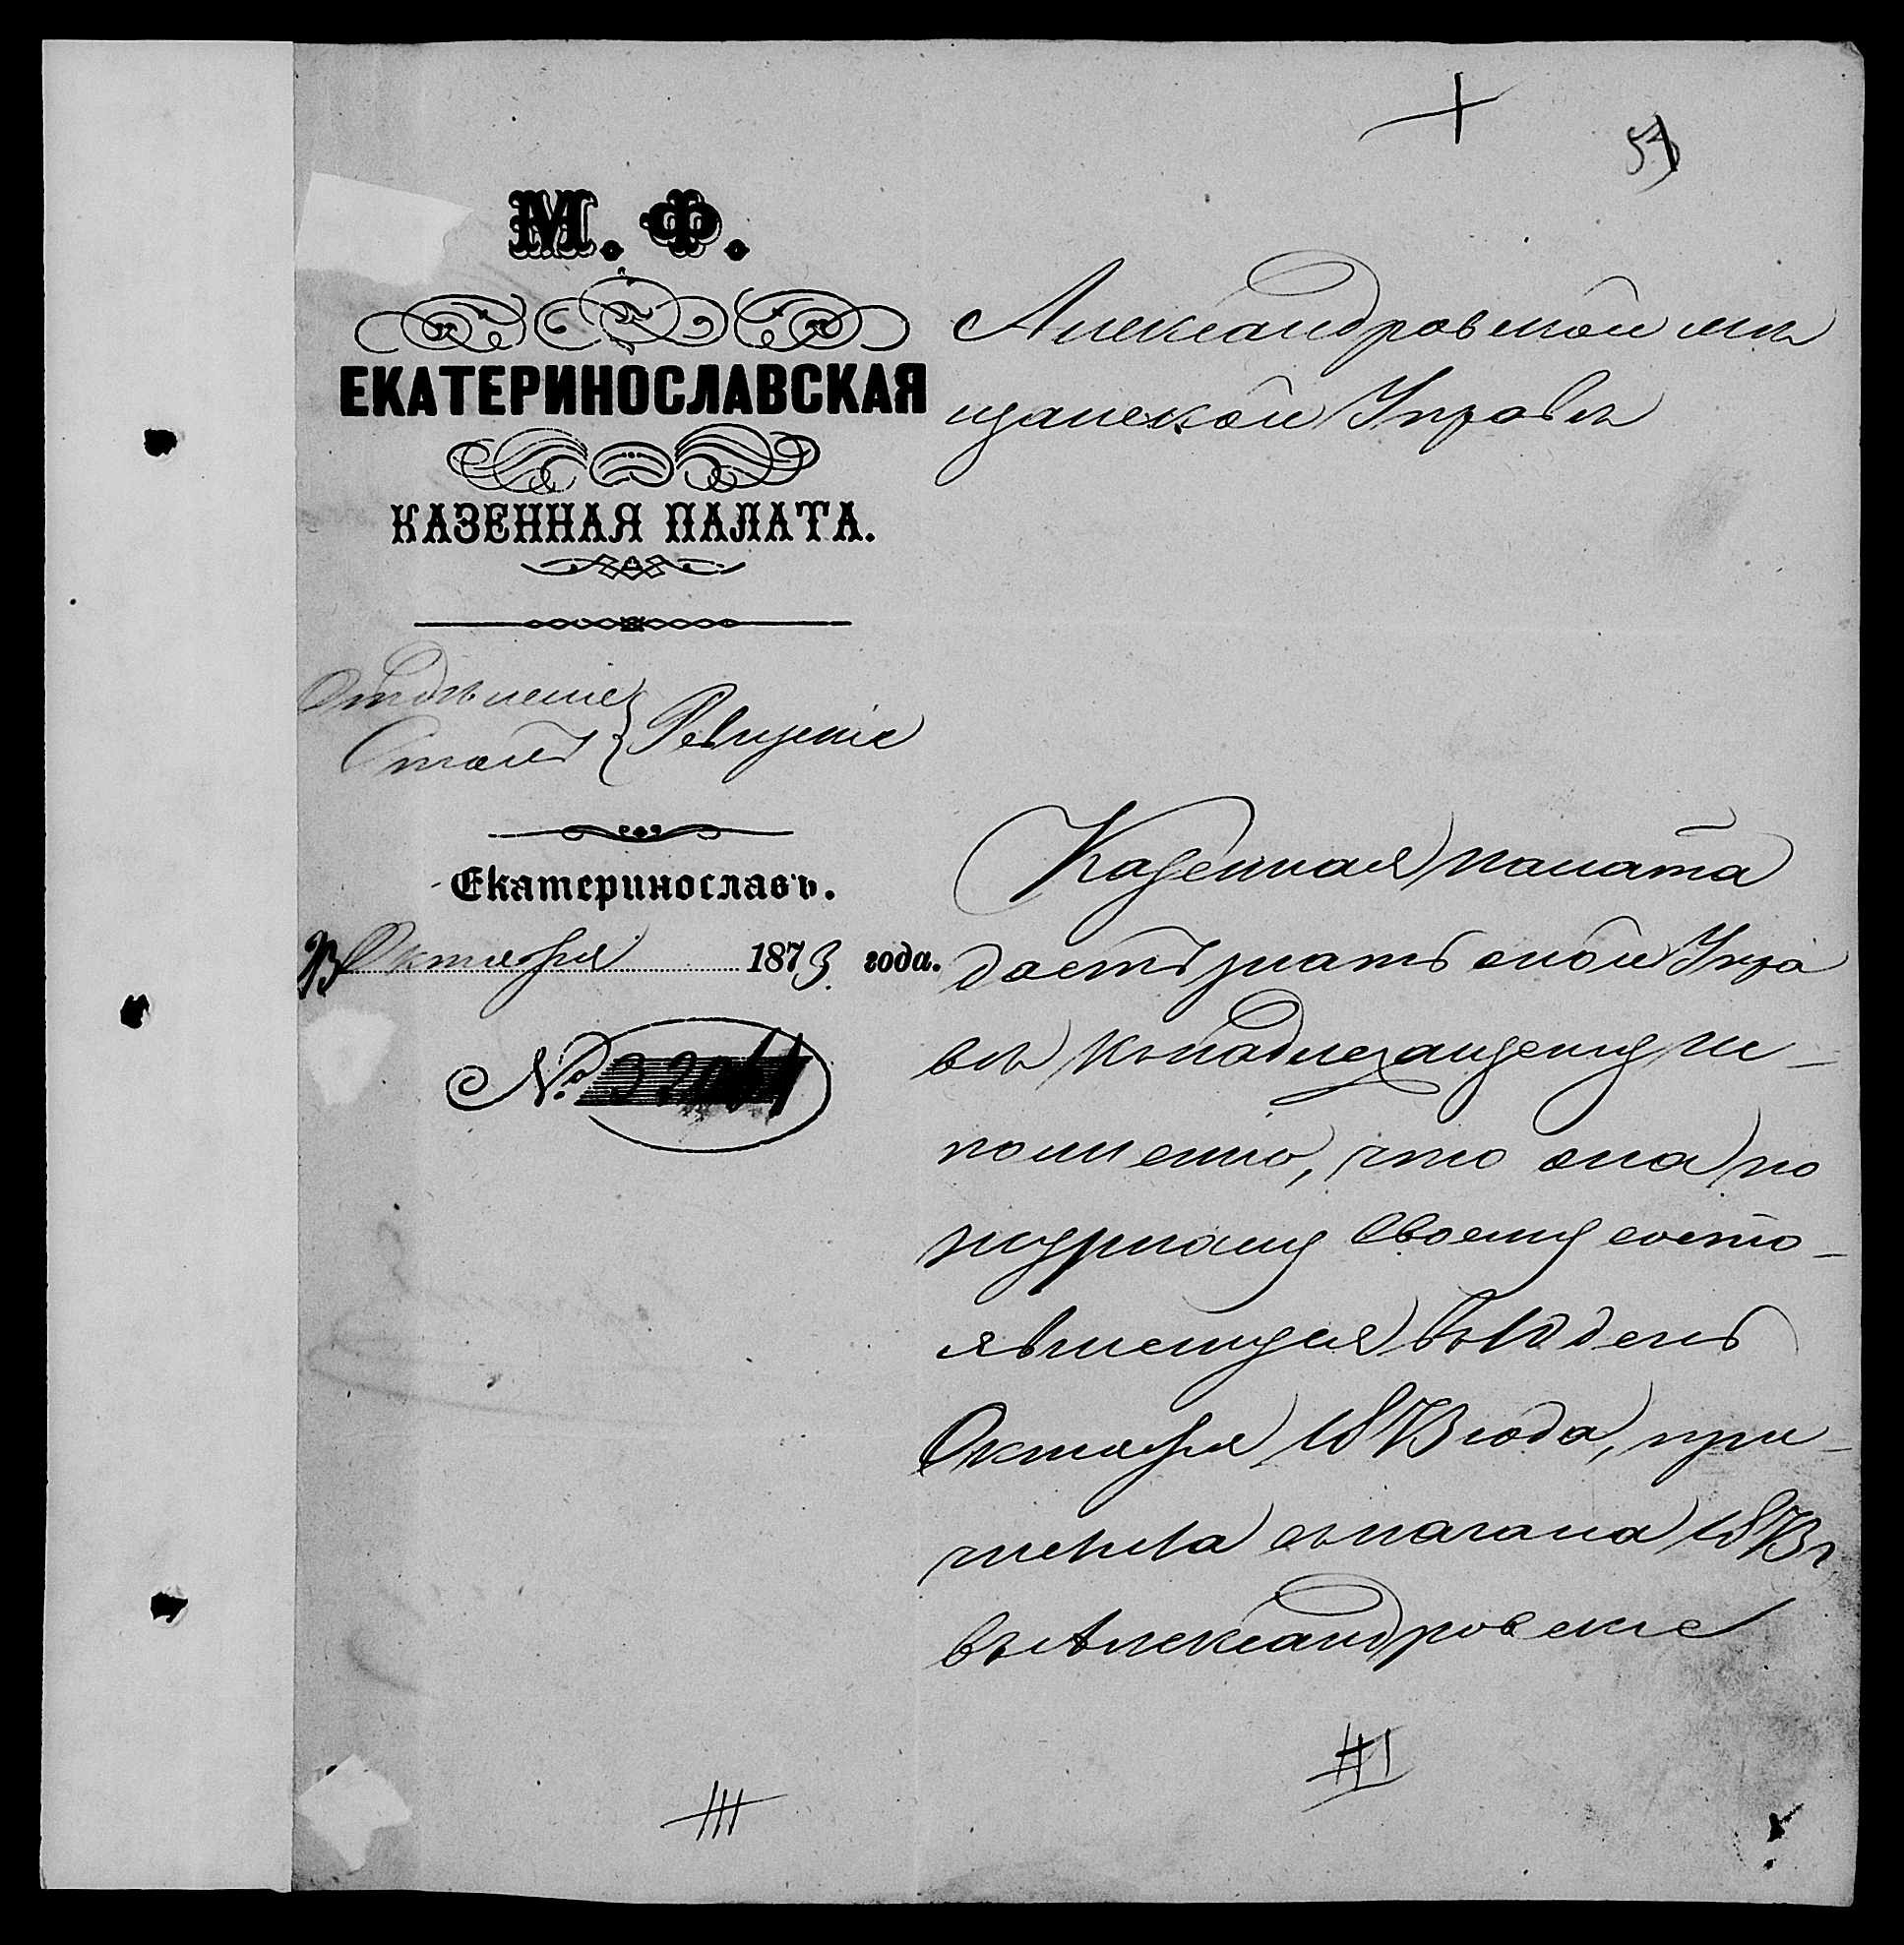 53
М. Ф.
ЕКАТЕРИНОСЛАВСКАЯ
КАЗЕННАЯ ПАЛАТА.
Отдѣленіе
Столъ
Екатеринославъ.
23 Октября 1873 года.
№
Александровской мѣ
щанской Управѣ
Казенная палата
даетъ знать оной Упра
вѣ къ надлежащему ис-
полненію, что она по
журналу своему состо-
явшемуся въ 12 день
Октября 1873 года, при-
числила съ начала 1873 г
въ Александровскіе